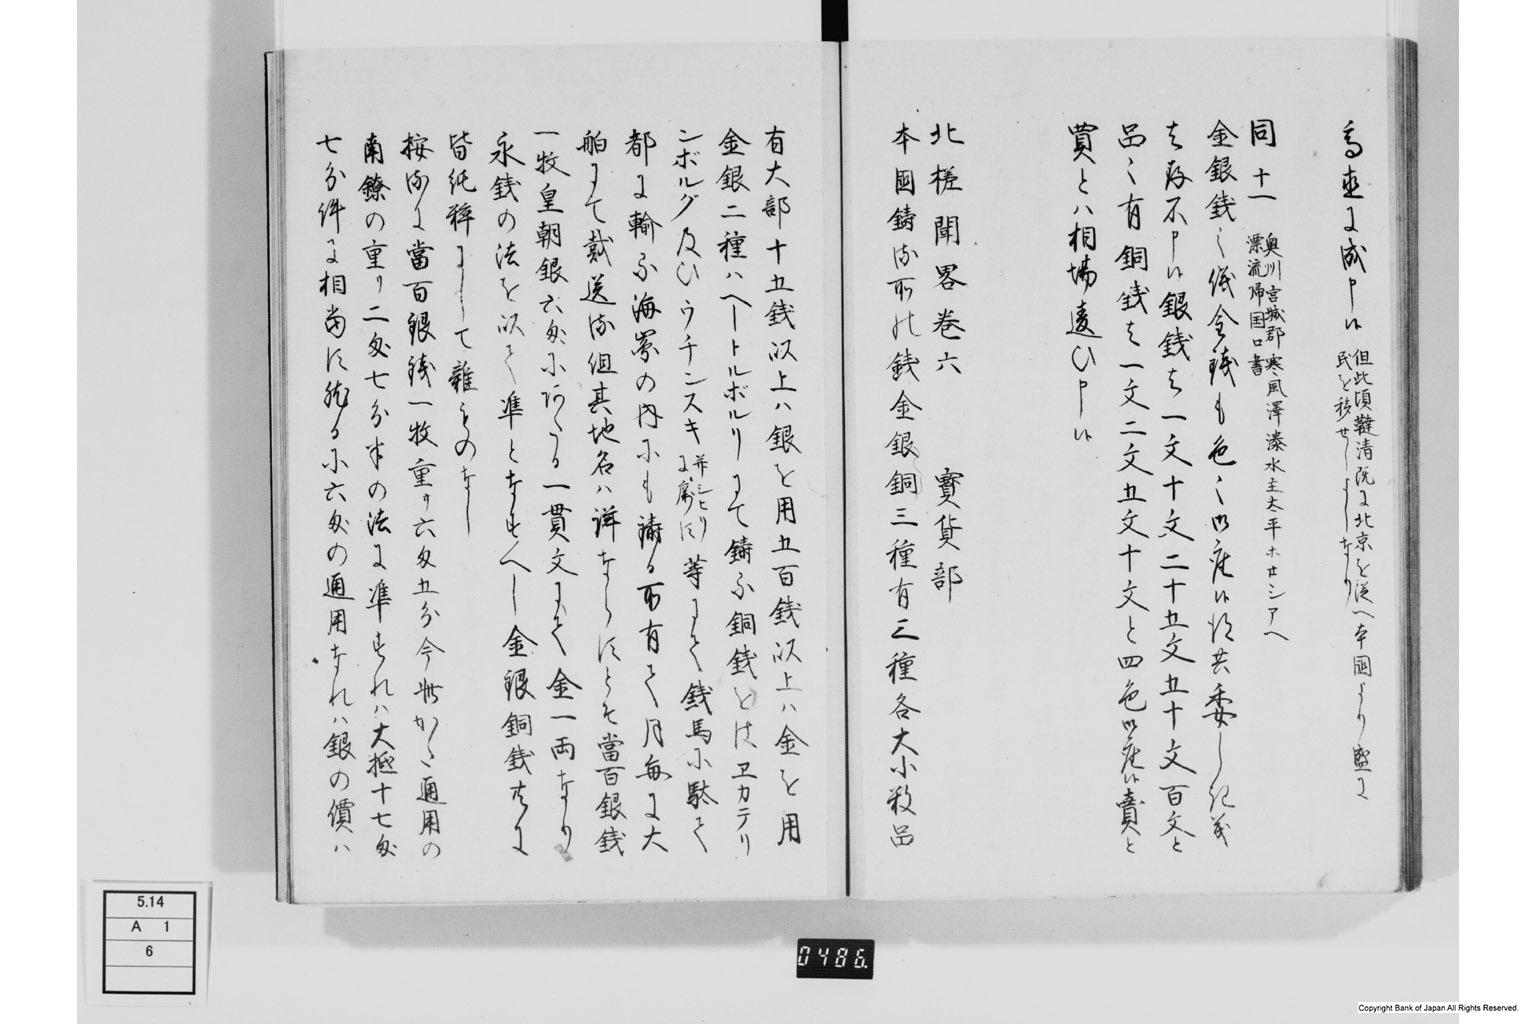 高直ニ成申候 但此頃韃清既ニ北京を従へ本國より盛ニ
民を移せしよしなり
同十一 奥州宮城郡寒風澤湊水主太平ホヲロシアヘ
漂流帰国口書
金銀銭之儀金銭も色々御座候得共委しく
名存不申候銀銭は一文十文二十五文五十文百文と
品々有銅銭は一文二文五文十文と四色御座候賣と
買とハ相場違ひ申候
北槎聞畧巻六 寳貨部
本國鋳る所の銭金銀銅三種有三種各大小数品
有大部十五銭以上ハ銀を用五百銭以上ハ金を用
金銀二種ハヘートルボルリにて鋳る銅銭をはヱカテリ
ンボルグ及ひウチンスキ 等にて銭馬に駄て
都に輸る海岸の内にも鋳る所有て月毎に大
舶にて載送る但其地名ハ詳ならすとそ當百銀銭
一枚皇朝銀六匁にあたる一貫文にて金一両なり
永銭の法を以て準となすへし金銀銅銭共に
皆純粹にして雜ものなし
按るに當百銀銭一枚重サ六匁五分今世かた通用の
南鐐の重り二匁七分半の法に準すれハ大抵十七匁
七分件に相当に然るに六匁の通用なれハ銀の價ハ
5.14
A 1
6
0486
Copyright Bank of Japan All Rights Reserved.